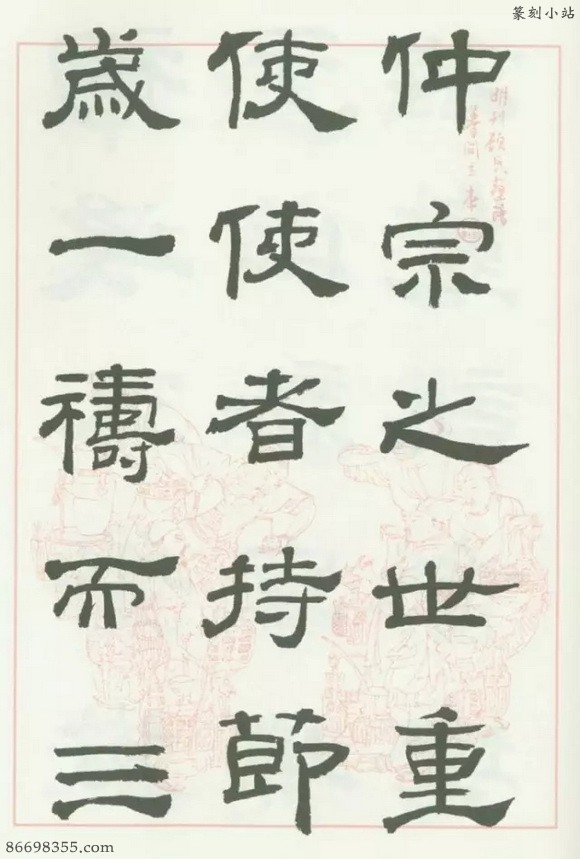 篆刻小站
仲宗之世重
使使者持節
歲一禱而三
86698355.com